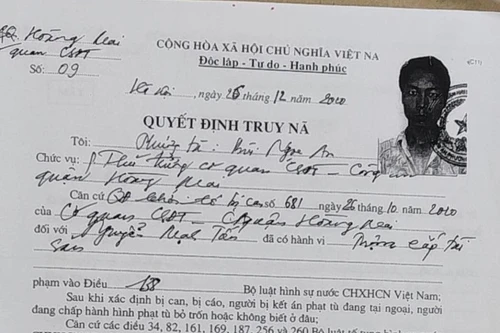 CQ. Hoàng Mai
quan CSĐT
Số: 09
CỘNG HÒA XÃ HỘI CHỦ NGHĨA VIỆT NA
Độc lập - Tự do - Hạnh phúc
Hà Nội, ngày 26 tháng 12 năm 2020
QUYẾT ĐỊNH TRUY NÃ
Tôi: Bùi Ngọc An
Chức vụ: Phó thủ trưởng cơ quan CSĐT - Công an
quận Hoàng Mai
Căn cứ QĐ khởi tố bị can số 681 ngày 26 tháng 10 năm 2020
của Cơ quan CSĐT - CA quận Hoàng Mai
đối với Nguyễn Mạnh Tấn đã có hành vi Trộm cắp tài
sản
phạm vào Điều 168 Bộ luật hình sự nước CHXHCN Việt Nam;
Sau khi xác định bị can, bị cáo, người bị kết án phạt tù đang tại ngoại, người
đang chấp hành hình phạt tù bỏ trốn hoặc không biết ở đâu;
Căn cứ các điều 34, 82, 161, 169, 187, 256 và 260 Bộ luật tố